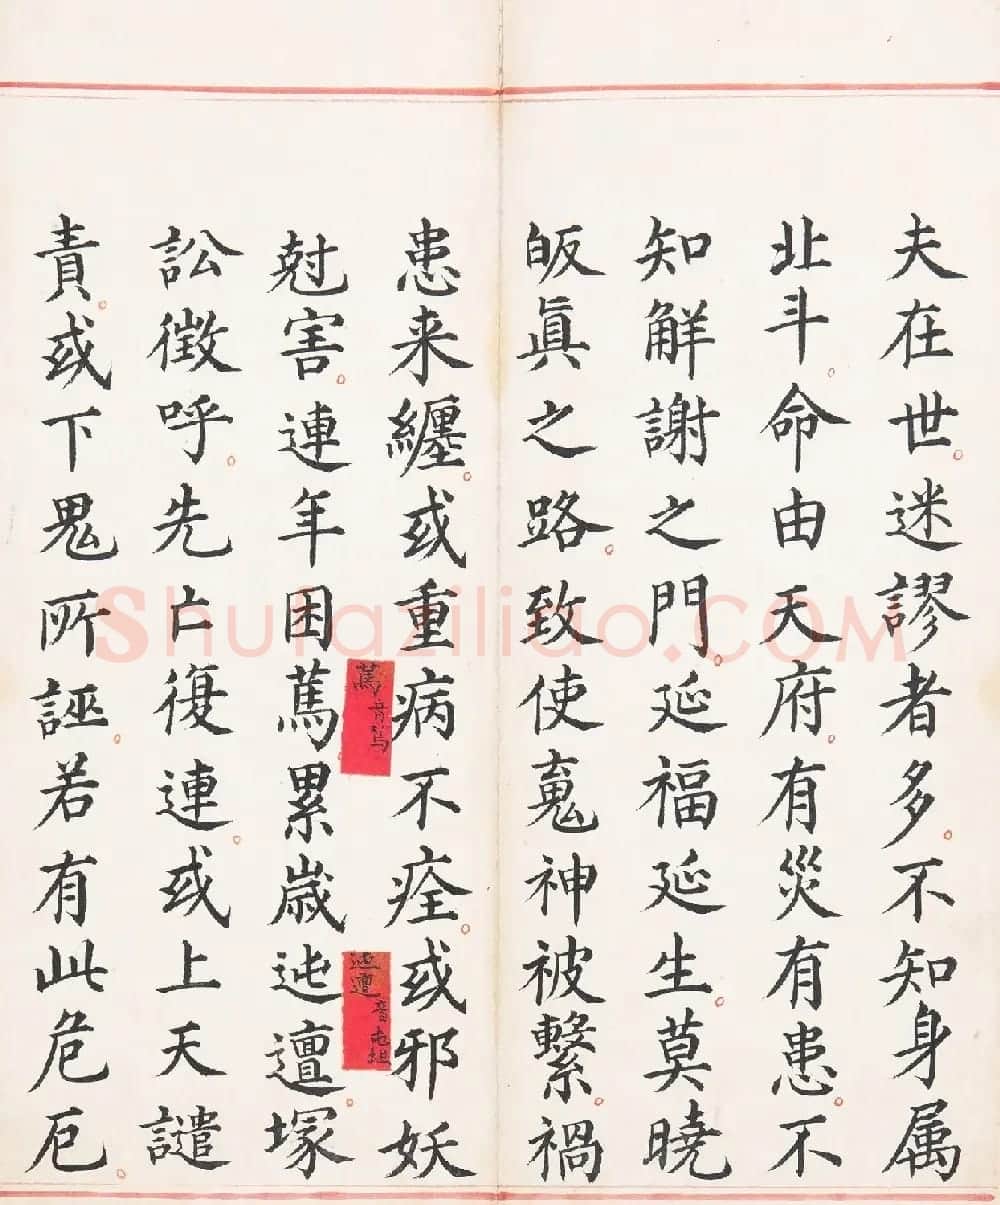 夫在世。迷謬者多。不知身属
北斗。命由天府。有災有患。不
知解謝之門。延福延生。莫曉
皈眞之路。致使䰠神被繫。禍
患来纏。或重病不痊。或邪妖
尅害。連年困篤累歲迍邅。塚
訟徵呼。先亡復連。或上天譴
責。或下鬼所誣。若有此危厄。
篤音篤
迍邅音屯
Shufaziliao.COM